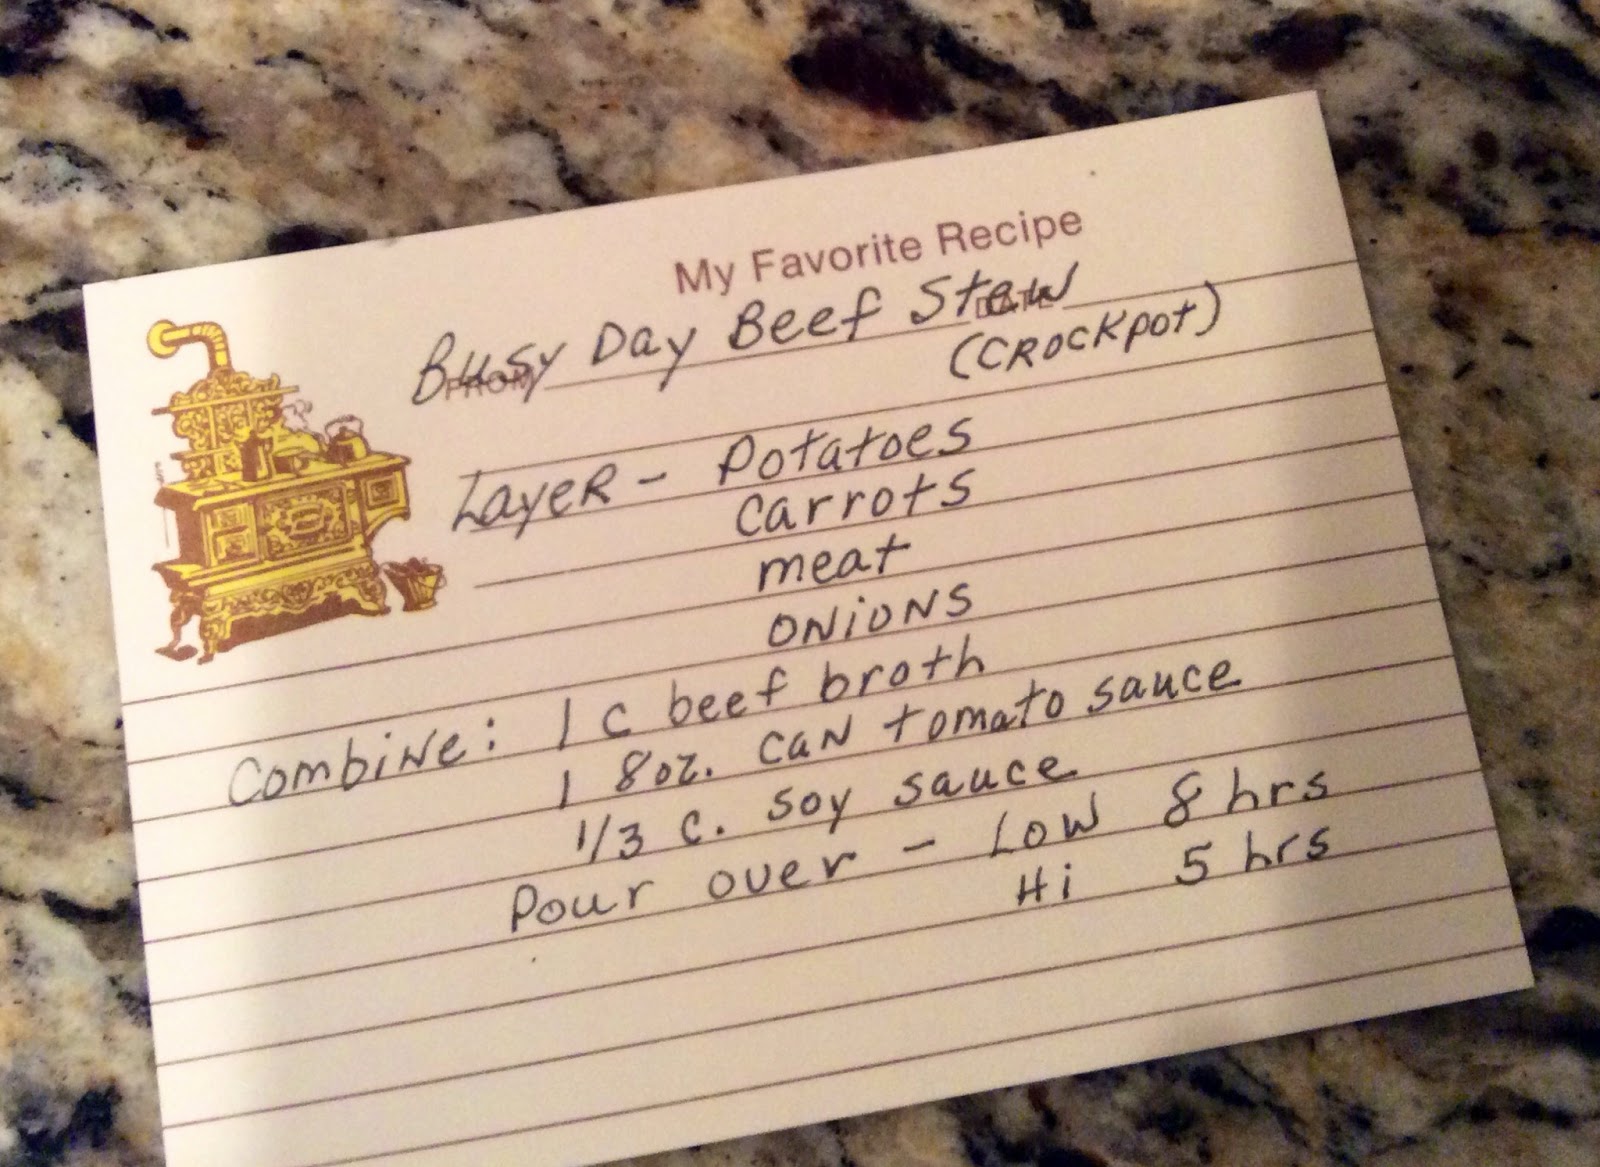 My Favorite Recipe
Busy Day Beef Stew
FROM DATE
(CROCKPOT)
Layer - Potatoes
Carrots
meat
ONiONS
Combine: 1 c beef broth
1 8 oz. can tomato sauce
1/3 c. soy sauce
Pour over - Low 8 hrs
Hi 5 hrs